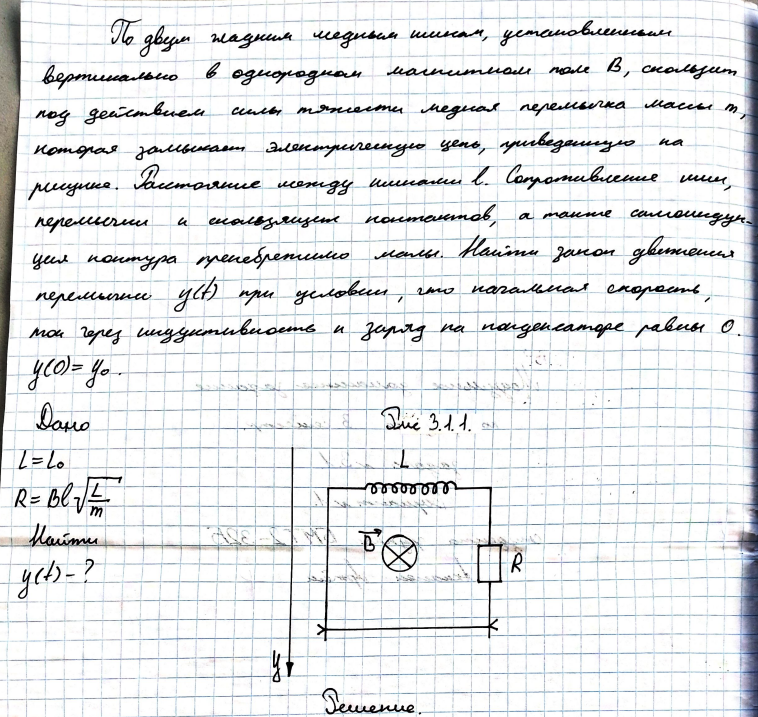 По двум гладким медным шинам, установленным
вертикально в однородном магнитном поле B, скользит
под действием силы тяжести медная перемычка массы m,
которая замыкает электрическую цепь, приведенную на
рисунке. Расстояние между шинами l. Сопротивление шин,
перемычки и скользящих контактов, а также самоиндук-
ция контура пренебрежимо малы. Найти закон движения
перемычки y(t) при условии, что начальная скорость,
ток через индуктивность и заряд на конденсаторе равны 0.
y(0)=y₀.
Дано
Рис 3.1.1.
L=L₀
L
R=Bl√(L/m)
Найти
B
R
y(t)-?
y
Решение.